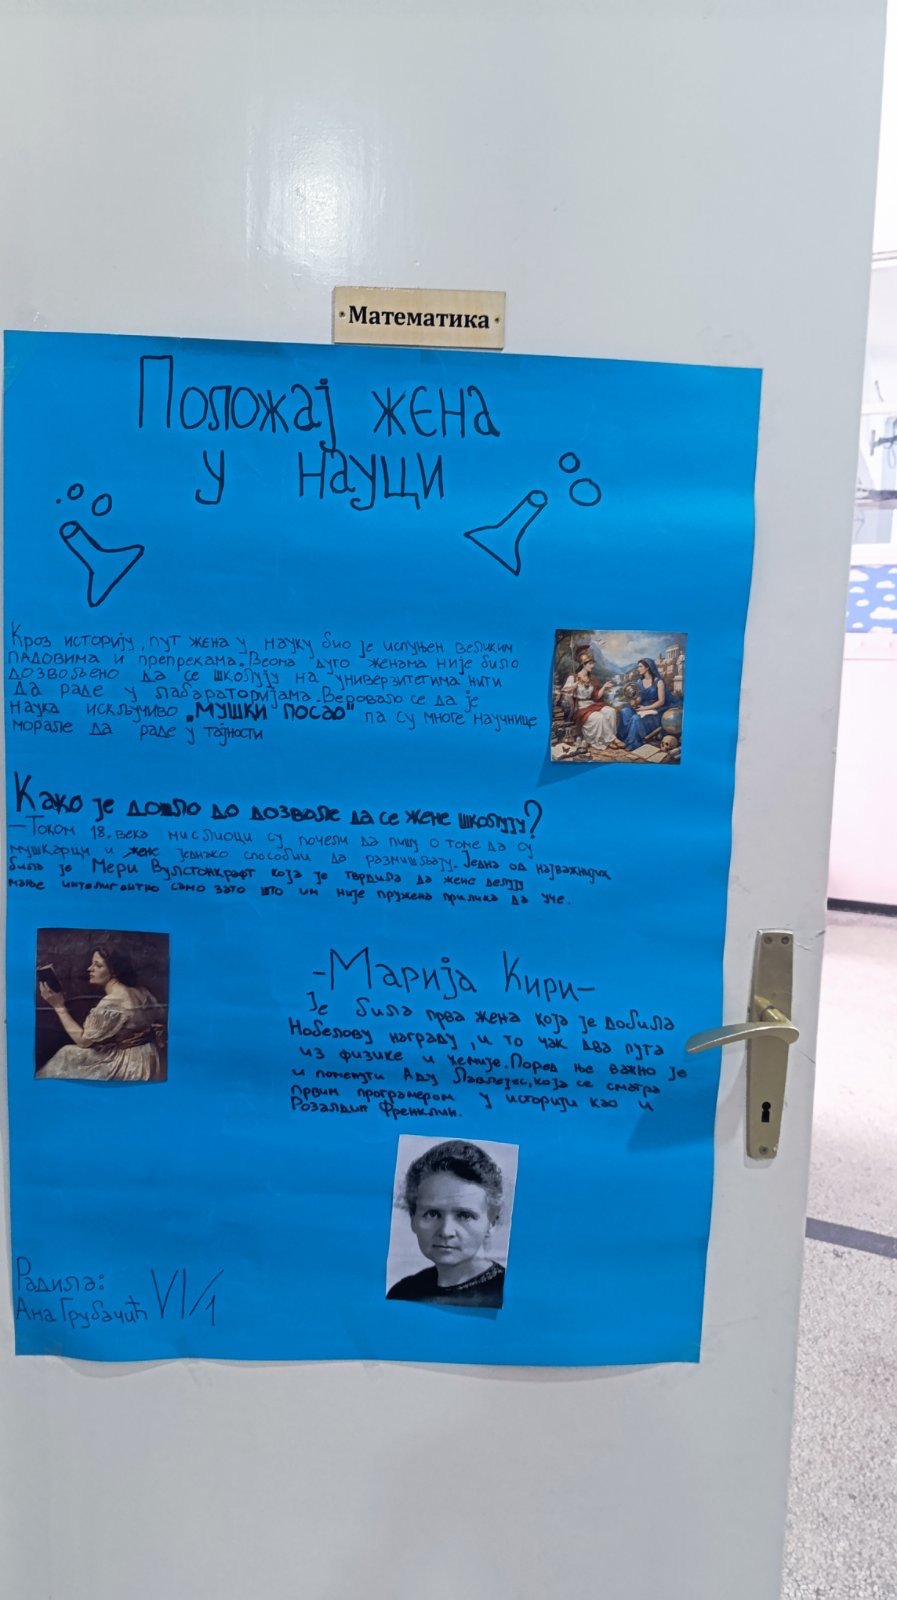 Математика
Положај жена
у науци
Кроз историју, пут жена у науку био је испуњен великим
падовима и препрекама. Веома дуго женама није било
дозвољено да се школују на универзитетима нити
да раде у лабараторијама. Веровало се да је
наука искључиво „МУШКИ ПОСАО" па су многе научнице
морале да раде у тајности
Како је дошло до дозволе да се жене школују?
-Током 18. века мислиоци су почели да пишу о томе да су
мушкарци и жене једнако способни да размишљају. Једна од најважнијих
била је Мери Вулстонкрафт која је тврдила да жене делују
мање интелигентно само зато што им није пружена прилика да уче.
-Марија Кири-
Је била прва жена која је добила
Нобелову награду, и то чак два пута
из физике и хемије. Поред ње важно је
и поменути Аду Лавлејес, која се сматра
првим програмером у историји као и
Розалдин Френклин.
Радила:
Ана Грубачић VI/1